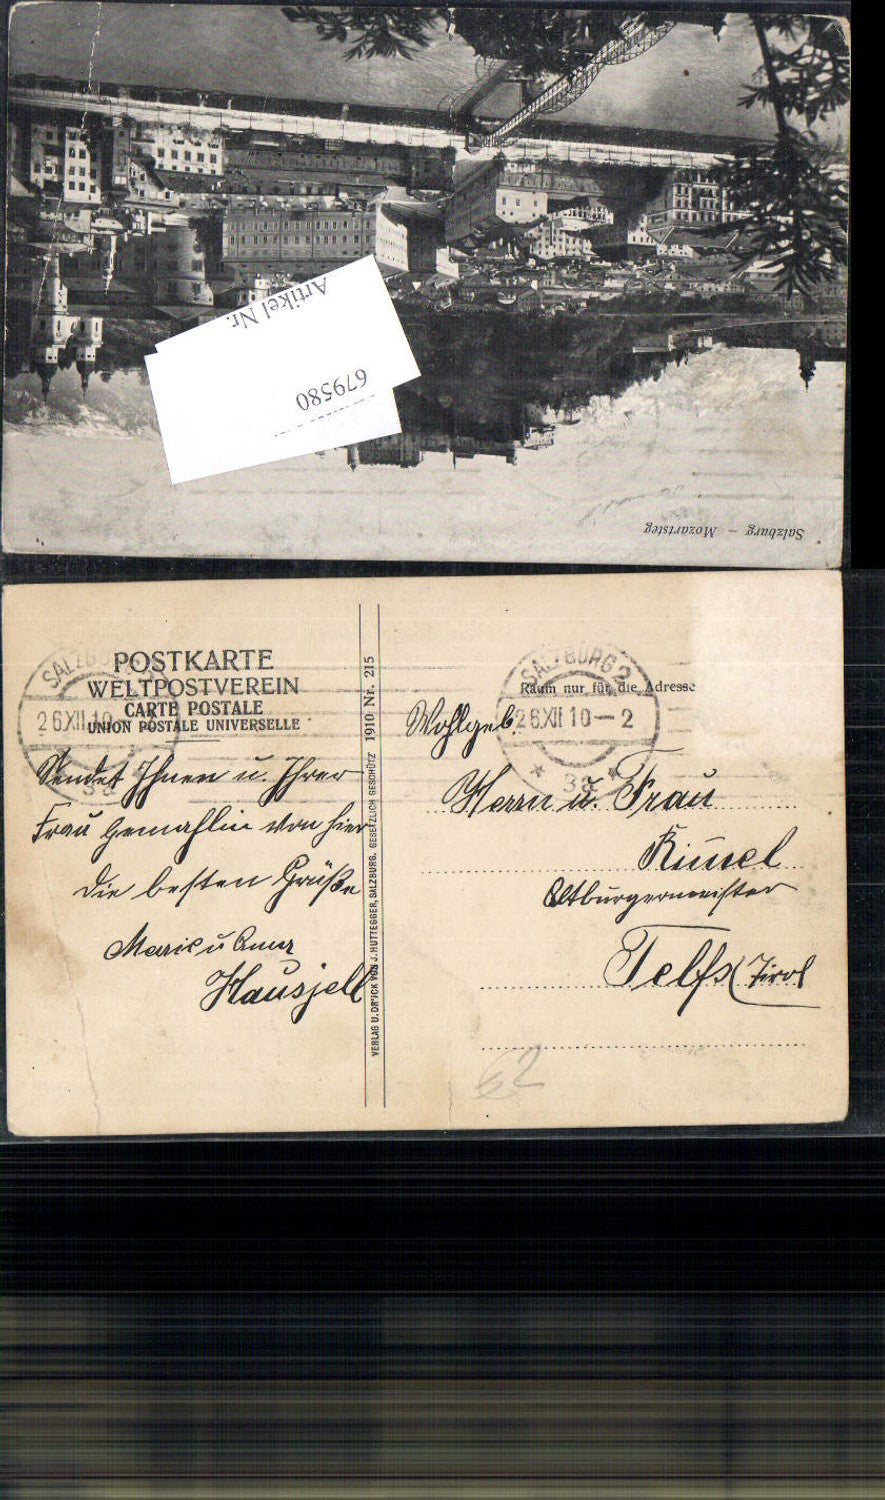 Artikel Nr.
679580
Salzburg – Mozartsteg
POSTKARTE
WELTPOSTVEREIN
CARTE POSTALE
UNION POSTALE UNIVERSELLE
SALZBURG
26.XII.10
Sendet Ihnen u. Ihrer
Frau Gemahlin von hier
die besten Grüße
Marie u Anna
Hausjell
1910 Nr. 215
VERLAG U. DRUCK VON J. HUTTEGGER, SALZBURG. GESETZLICH GESCHÜTZT
SALZBURG 2
26.XII.10–2
* 3a *
Raum nur für die Adresse
Wohlgeb.
Herrn u. Frau
Altburgermeister
Telfs (Tirol
62